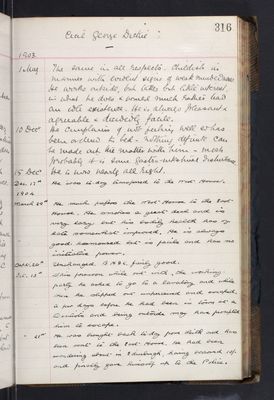 316
Cecil George Duthie
1903
1 May. The same in all respects. Childish in
manner with evident signs of weak mindedness.
He works outside, but takes but little interest
in what he does & would much rather lead
an idle existence. He is always pleasant &
agreeable & decidedly facile.
10 Decr He complains of not feeling well & has
been ordered to bed. Nothing definite can
be made out the matter with him - most
probably it is some gastro-intestinal disturbance
15 Decr He is now nearly all right.
Dec. 17th He was to day transferred to the West House.
1904
March 29th He much prefers the West House to the East
House. He smokes a great deal and is
very lazy but his bodily health has of
late somewhat improved. He is always
good humoured but is facile and has no
initiative power.
Sept. 26th Unchanged. B.H. fairly good.
Dec. 18th This forenoon while out with the working
party he asked to go to a lavatory and while
there he slipped out unobserved and escaped.
a few days before he had been in town at a
and being outside may have prompted
him to escape.
21st He was brought back to day from Leith and has
been sent to the East House. He had been
wandering about in Edinburgh, having
and finally gave himself up to the Police.